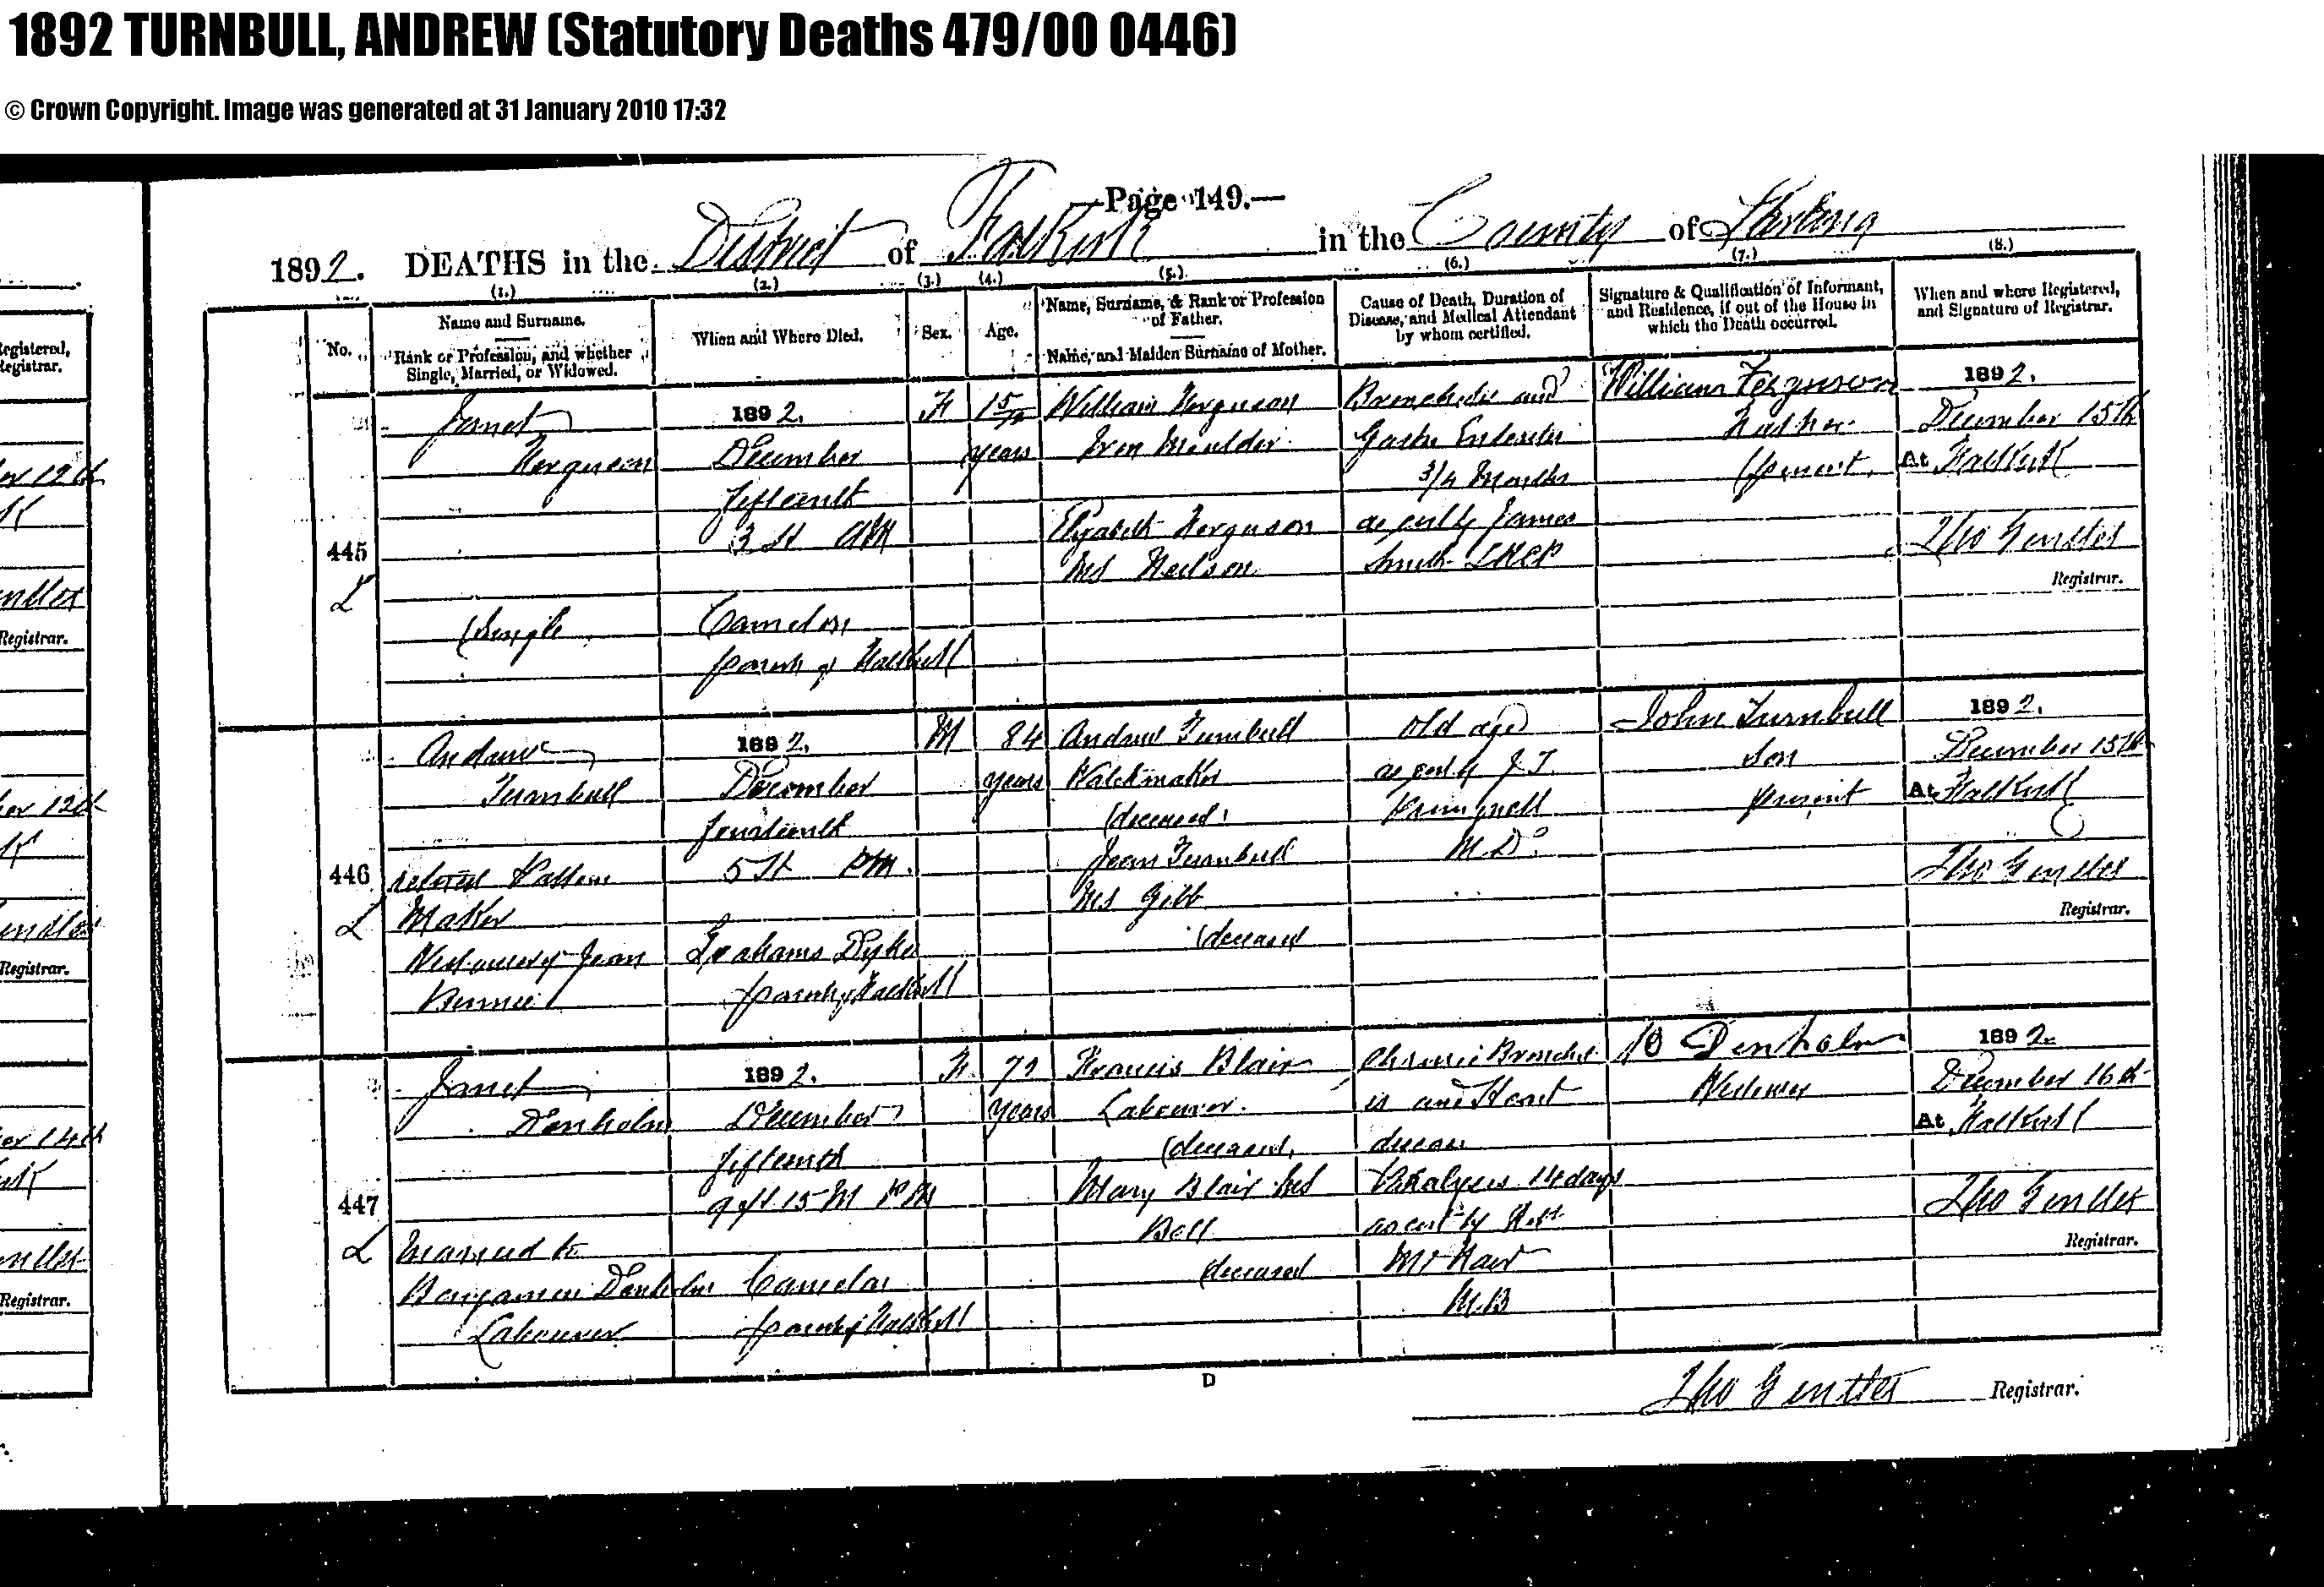 1892 TURNBULL, ANDREW (Statutory Deaths 479/00 0446)
© Crown Copyright. Image was generated at 31 January 2010 17:32
—Page 149.—
1892. DEATHS in the District of Falkirk in the County of Stirling
(1.) (2.) (3.) (4.) (5.) (6.) (7.) (8.)
No.
Name and Surname.
Rank or Profession, and whether
Single, Married, or Widowed.
When and Where Died.
Sex.
Age.
Name, Surname, & Rank or Profession
of Father.
Name, and Maiden Surname of Mother.
Cause of Death, Duration of
Disease, and Medical Attendant
by whom certified.
Signature & Qualification of Informant,
and Residence, if out of the House in
which the Death occurred.
When and where Registered,
and Signature of Registrar.
445
Janet
Ferguson
(Single
1892.
December
Fifteenth
3 H AM
Camelon
parish of Falkirk
F
years
William Ferguson
Iron Moulder
Elizabeth Ferguson
MS Neilson
and
Gastro Enteritis
3/4 Months
as cert by James
Smith LRCP
William Ferguson
Father
(present.
1892.
December 15th
At Falkirk
Tho Gentles
Registrar.
446
Andrew
Turnbull
retired Pattern
Maker
Widower of Jean
Rennie
1892.
December
fourteenth
5 H PM.
Grahams Dyke
parish of Falkirk
M
84
years
Andrew Turnbull
Watchmaker
(deceased)
Jean Turnbull
MS Gibb
(deceased
old age
as cert by J. T.
M.D.
John Turnbull
Son
present
1892.
December 15th
At Falkirk
Tho Gentles
Registrar.
447
Janet
Denholm
married to
Benjamin Denholm
Labourer
1892.
December
fifteenth
9 H 15 M PM
Camelon
parish of Falkirk
F
72
years
Francis Blair
Labourer.
(deceased,
Mary Blair MS
Bell
deceased
Chronic Bronchit
is and Heart
disease
Paralysis 14 days
as cert by
M.B
B Denholm
Widower
1892.
December 16th
At Falkirk
Tho Gentles
Registrar.
D
Tho Gentles Registrar.